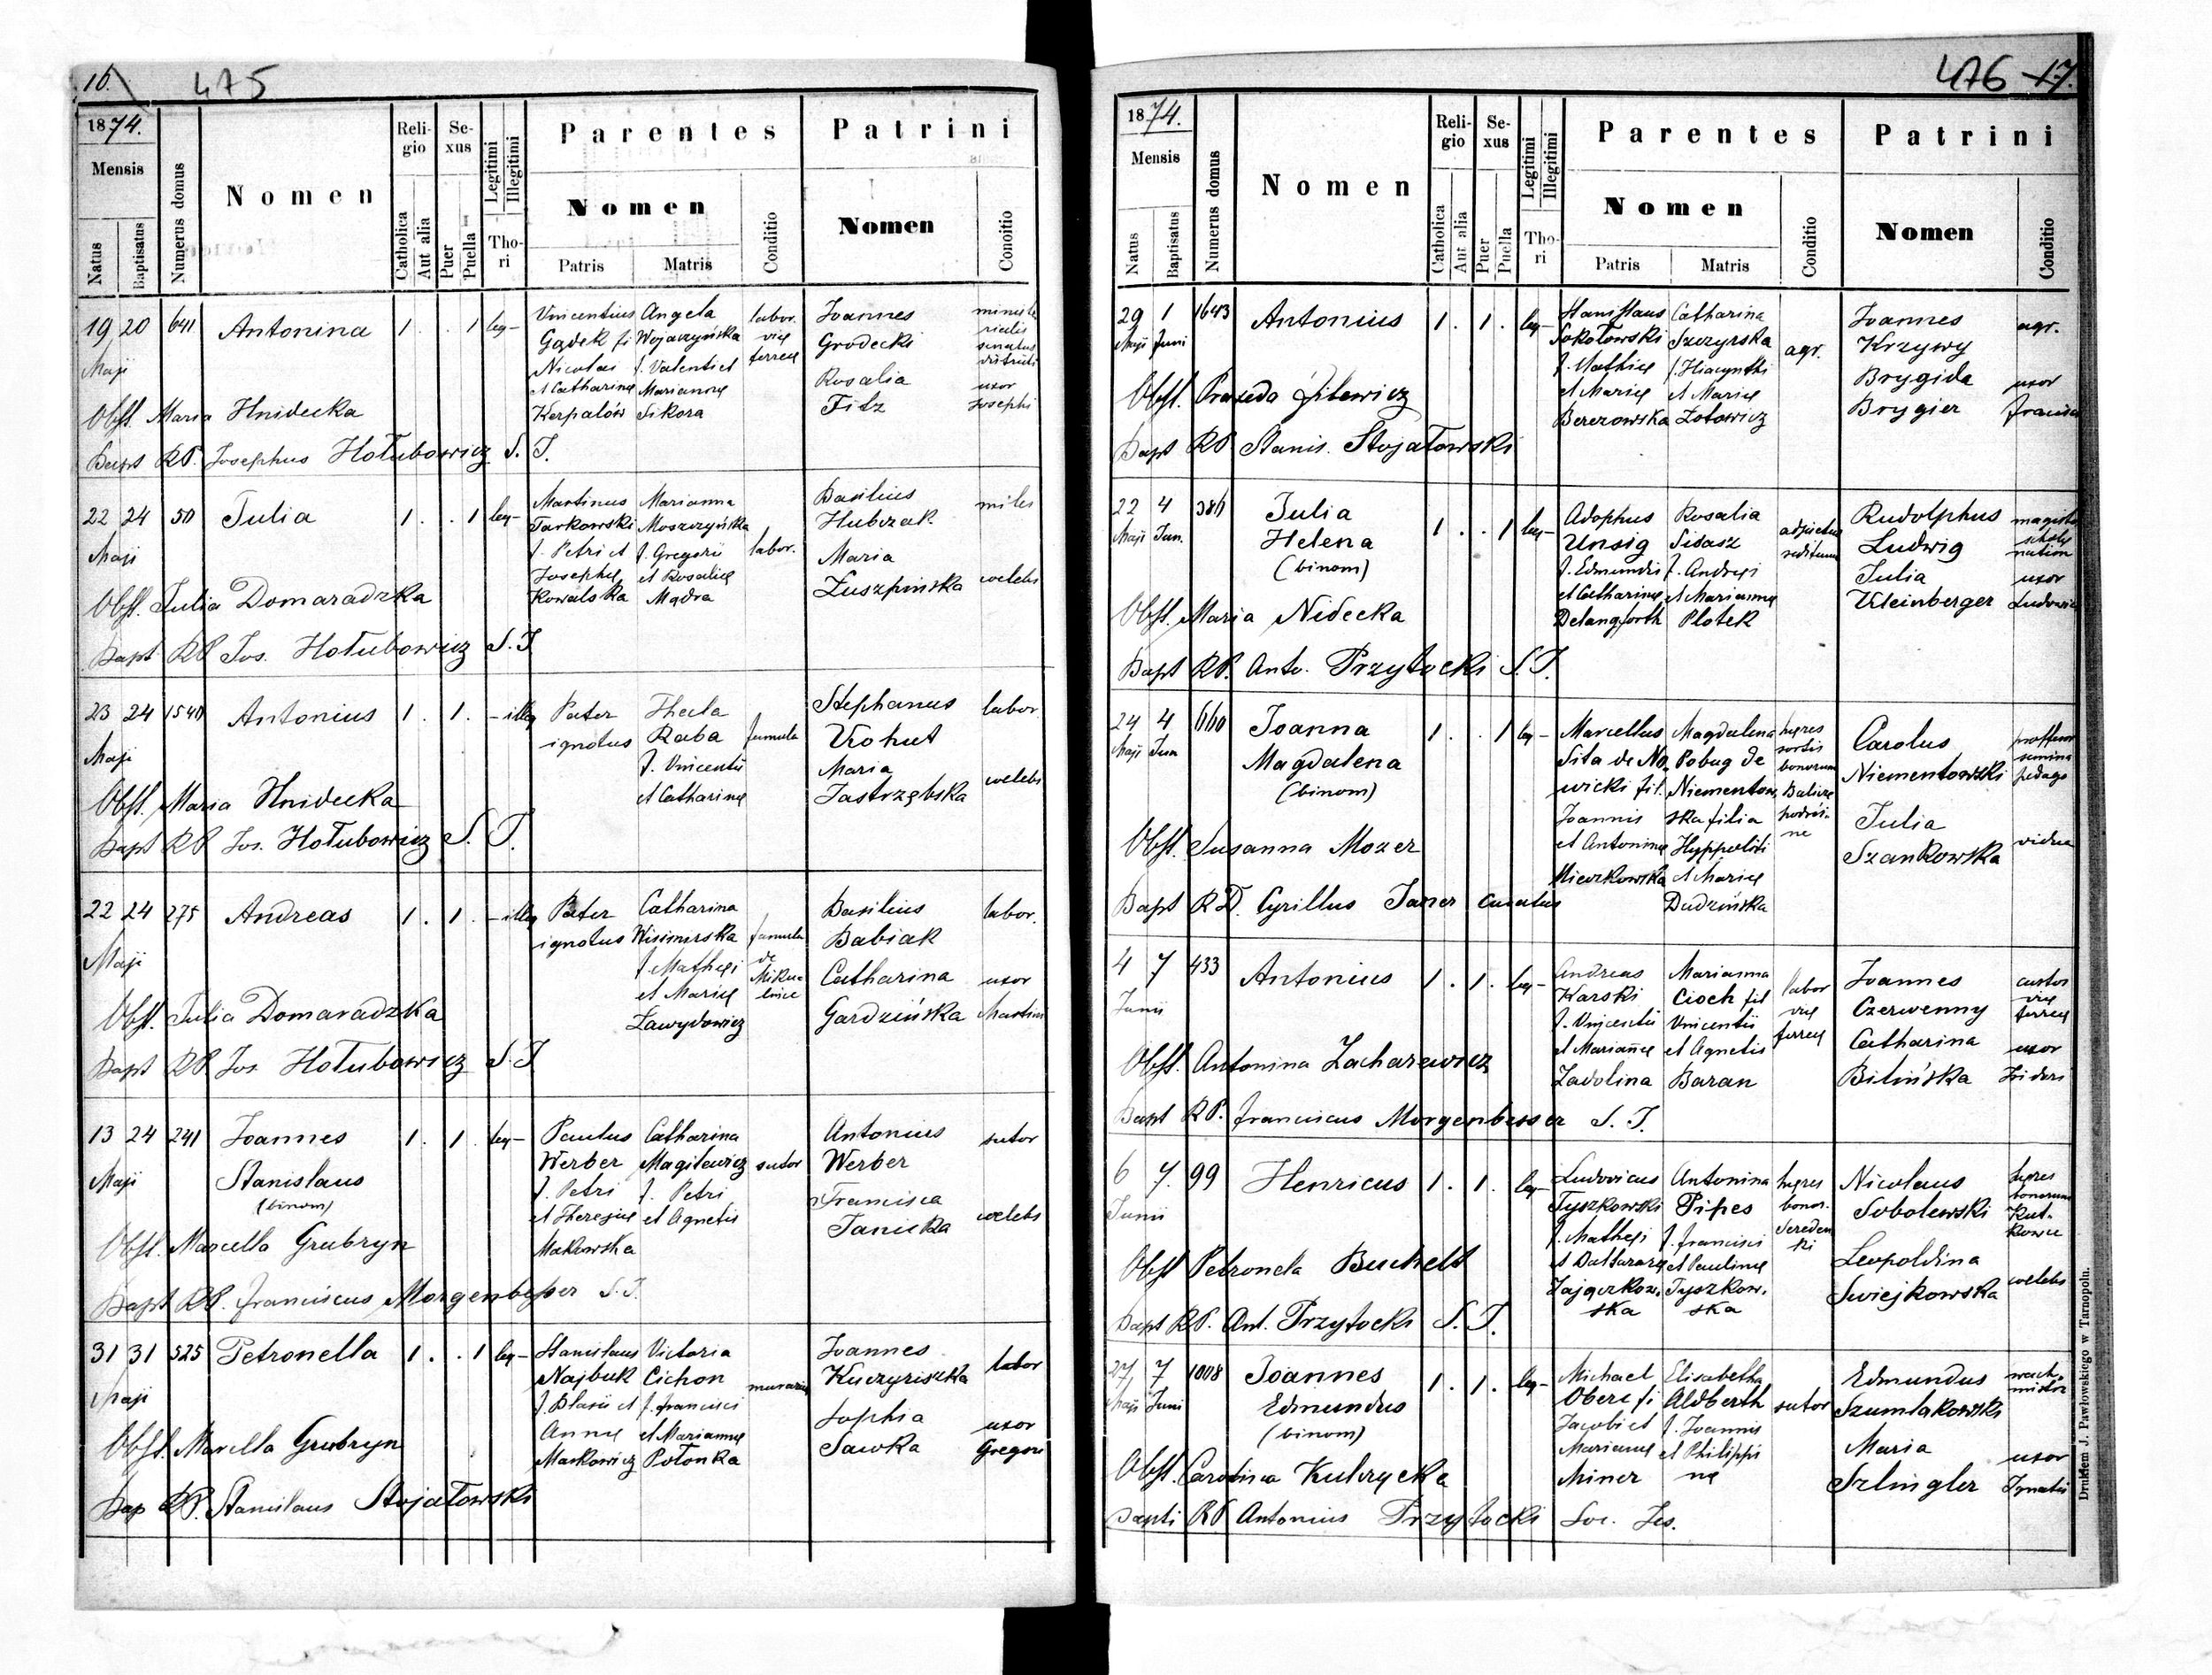 16.
475
1874.
Mensis
Natus
Baptisatus
Numerus domus
Nomen
Religio
Catholica
Aut alia
Sexus
Puer
Puella
Legitimi
Illegitimi
Thori
Parentes
Nomen
Patris
Matris
Conditio
Patrini
Nomen
Conditio
19 20 641 Antonina 1. .1 leg-
Maji
Vincentius
Gądek fi
Nicolai
et Catharinę
Kerpalów
Angela
Wojaczyńska
f. Valenti et
Mariannę
Sikora
labor.
vię
ferreę
Joannes
Grodecki
Rosalia
Filz
uxor
Josephi
Obst. Maria Hnidecka
Bapt RP. Josephus Hołubowicz S. J.
22 24 50 Julia 1. .1 leg-
Maji
Martinus
Tarkowski
f. Petri et
Josephę
Kowalska
Marianna
Moszczyńska
f. Gregorii
et Rosalię
Mądra
labor.
Basilius
Hubczak
Maria
Łuszpińska
miles
celebs
Obst. Julia Domaradzka
Bapt RP Jos. Hołubowicz S. J
23 24 1540 Antonius 1. 1. - illeg
Maji
Pater
ignotus
Thecla
Raba
f. Vincentii
et Catharinę
famula
Stephanus
Kohut
Maria
Jastrzębska
labor.
celebs
Obst. Maria Hnidecka
Bapt RP Jos. Hołubowicz S. J.
22 24 275 Andreas 1. 1. - illeg
Maji
Pater
ignotus
Catharina
Wisimirska
f. Mathęi
et Marię
Zawydowicz
famula
de
Mikulińce
Basilius
Babiak
Catharina
Gardzińska
labor.
uxor
Martini
Obst. Julia Domaradzka
Bapt RP Jos Hołubowicz S. J
13 24 241 Joannes 1. 1. leg-
Maji
Stanislaus
(binom)
Paulus
Werber
f. Petri
et Theresię
Makowska
Catharina
Magilewicz
f. Petri
et Agnetis
sutor
Antonius
Werber
Francisca
Janicka
sutor
celebs
Obst. Marcella Grubryn
Bapt RP. Franciscus Morgenbesser S. J.
31 31 525 Petronella 1. .1 leg-
Maji
Stanislaus
Najbuk
f. Blasii et
Annę
Markowicz
Victoria
Cichon
f. Francisci
et Mariannę
Połonka
murarius
Joannes
Kuczyriszka
Sophia
Sawka
labor
uxor
Gregori
Obst. Marcella Grubryn
Bap RP. Stanislaus Stojałowski
476 17.
1874.
Mensis
Natus
Baptisatus
Numerus domus
Nomen
Religio
Catholica
Aut alia
Sexus
Puer
Puella
Legitimi
Illegitimi
Thori
Parentes
Nomen
Patris
Matris
Conditio
Patrini
Nomen
Conditio
29 1 1643 Antonius 1. 1. leg-
Maji Juni
Stanislaus
Sokołowski
f. Mathię
et Marię
Berezowska
Catharina
Szczyrska
f. Hiacynthi
et Marię
Zotowicz
agr.
Joannes
Krzywy
Brygida
Brygier
agr.
uxor
Obst. Praxeda Jilewicz
Bapt RP Stanis. Stojałowski
22 4 386 Julia 1. .1 leg-
Maji Jun.
Helena
(binom)
Adophus
Unsig
f. Edmundi
et Catharinę
Delangforth
Rosalia
Sidasz
f. Andreęi
et Mariannę
Plotek
Rudolphus
Ludwig
Julia
Kleinberger
uxor
Ludovici
Obst. Maria Nidecka
Bapt RP. Anto. Przytocki S. J.
24 4 660 Joanna 1. .1 leg-
Maji Jun
Magdalena
(binom)
Marcellus
Sita de No
wicki fil.
Joannis
et Antoninę
Mieczkowska
Magdalena
Pobug de
Niementow
ska filia
Hyppoliti
et Marię
Dudzińska
hęres
sortis
bonorum
Carolus
Niementowski
Julia
Szankowska
vidua
Obst. Susanna Mozer
Bapt RD. Cyrillus Janer Curatus
4 7 433 Antonius 1. 1. leg-
Junii
Andreas
Karski
f. Vincentii
et Mariañę
Zadolina
Marianna
Cioch fil
Vincentii
et Agnetis
Baran
labor
vię
ferreę
Joannes
Czerwenny
Catharina
Bilińska
custos
vię
ferreę
uxor
Isidori
Obst. Antonina Zacharewicz
Bapt RP. Franciscus Morgenbesser S. J.
6 7. 99 Henricus 1. 1. leg-
Junii
Ludovicus
Tyszkowski
f. Mathęi
et Baltazarę
Zajączkow.
ska
Antonina
Pipes
f. Francisci
et Paulinę
Tyszkow.
ska
hęres
bonor.
Sereden
ki
Nicolaus
Sobolewski
Leopoldina
Swiejkowska
hęres
bonorum
Kut-
kowce
celebs
Obst Petronela Buchelt
Bapt RP. Ant. Przytocki S. J.
27 7 1008 Joannes 1. 1. leg-
Maji Juni
Edmundus
(binom)
Michael
Oberc fi
Jacobi et
Mariannę
Miner
Elisabetha
Aldberth
f. Joannis
et Philippi
nę
sutor
Edmundus
Szumlakowski
Maria
Szlingler
wach.
mistrz
uxor
Ignatii
Obst. Carolina Kulzycka
Bapti RP Antonius Przytocki Soc. Jes.
Drukiem J. Pawłowskiego w Tarnopolu.